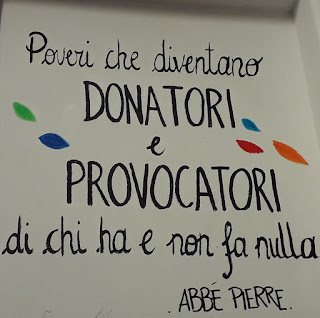 Poveri che diventano
DONATORI
e
PROVOCATORI
di chi ha e non fa nulla
. ABBÉ PIERRE.